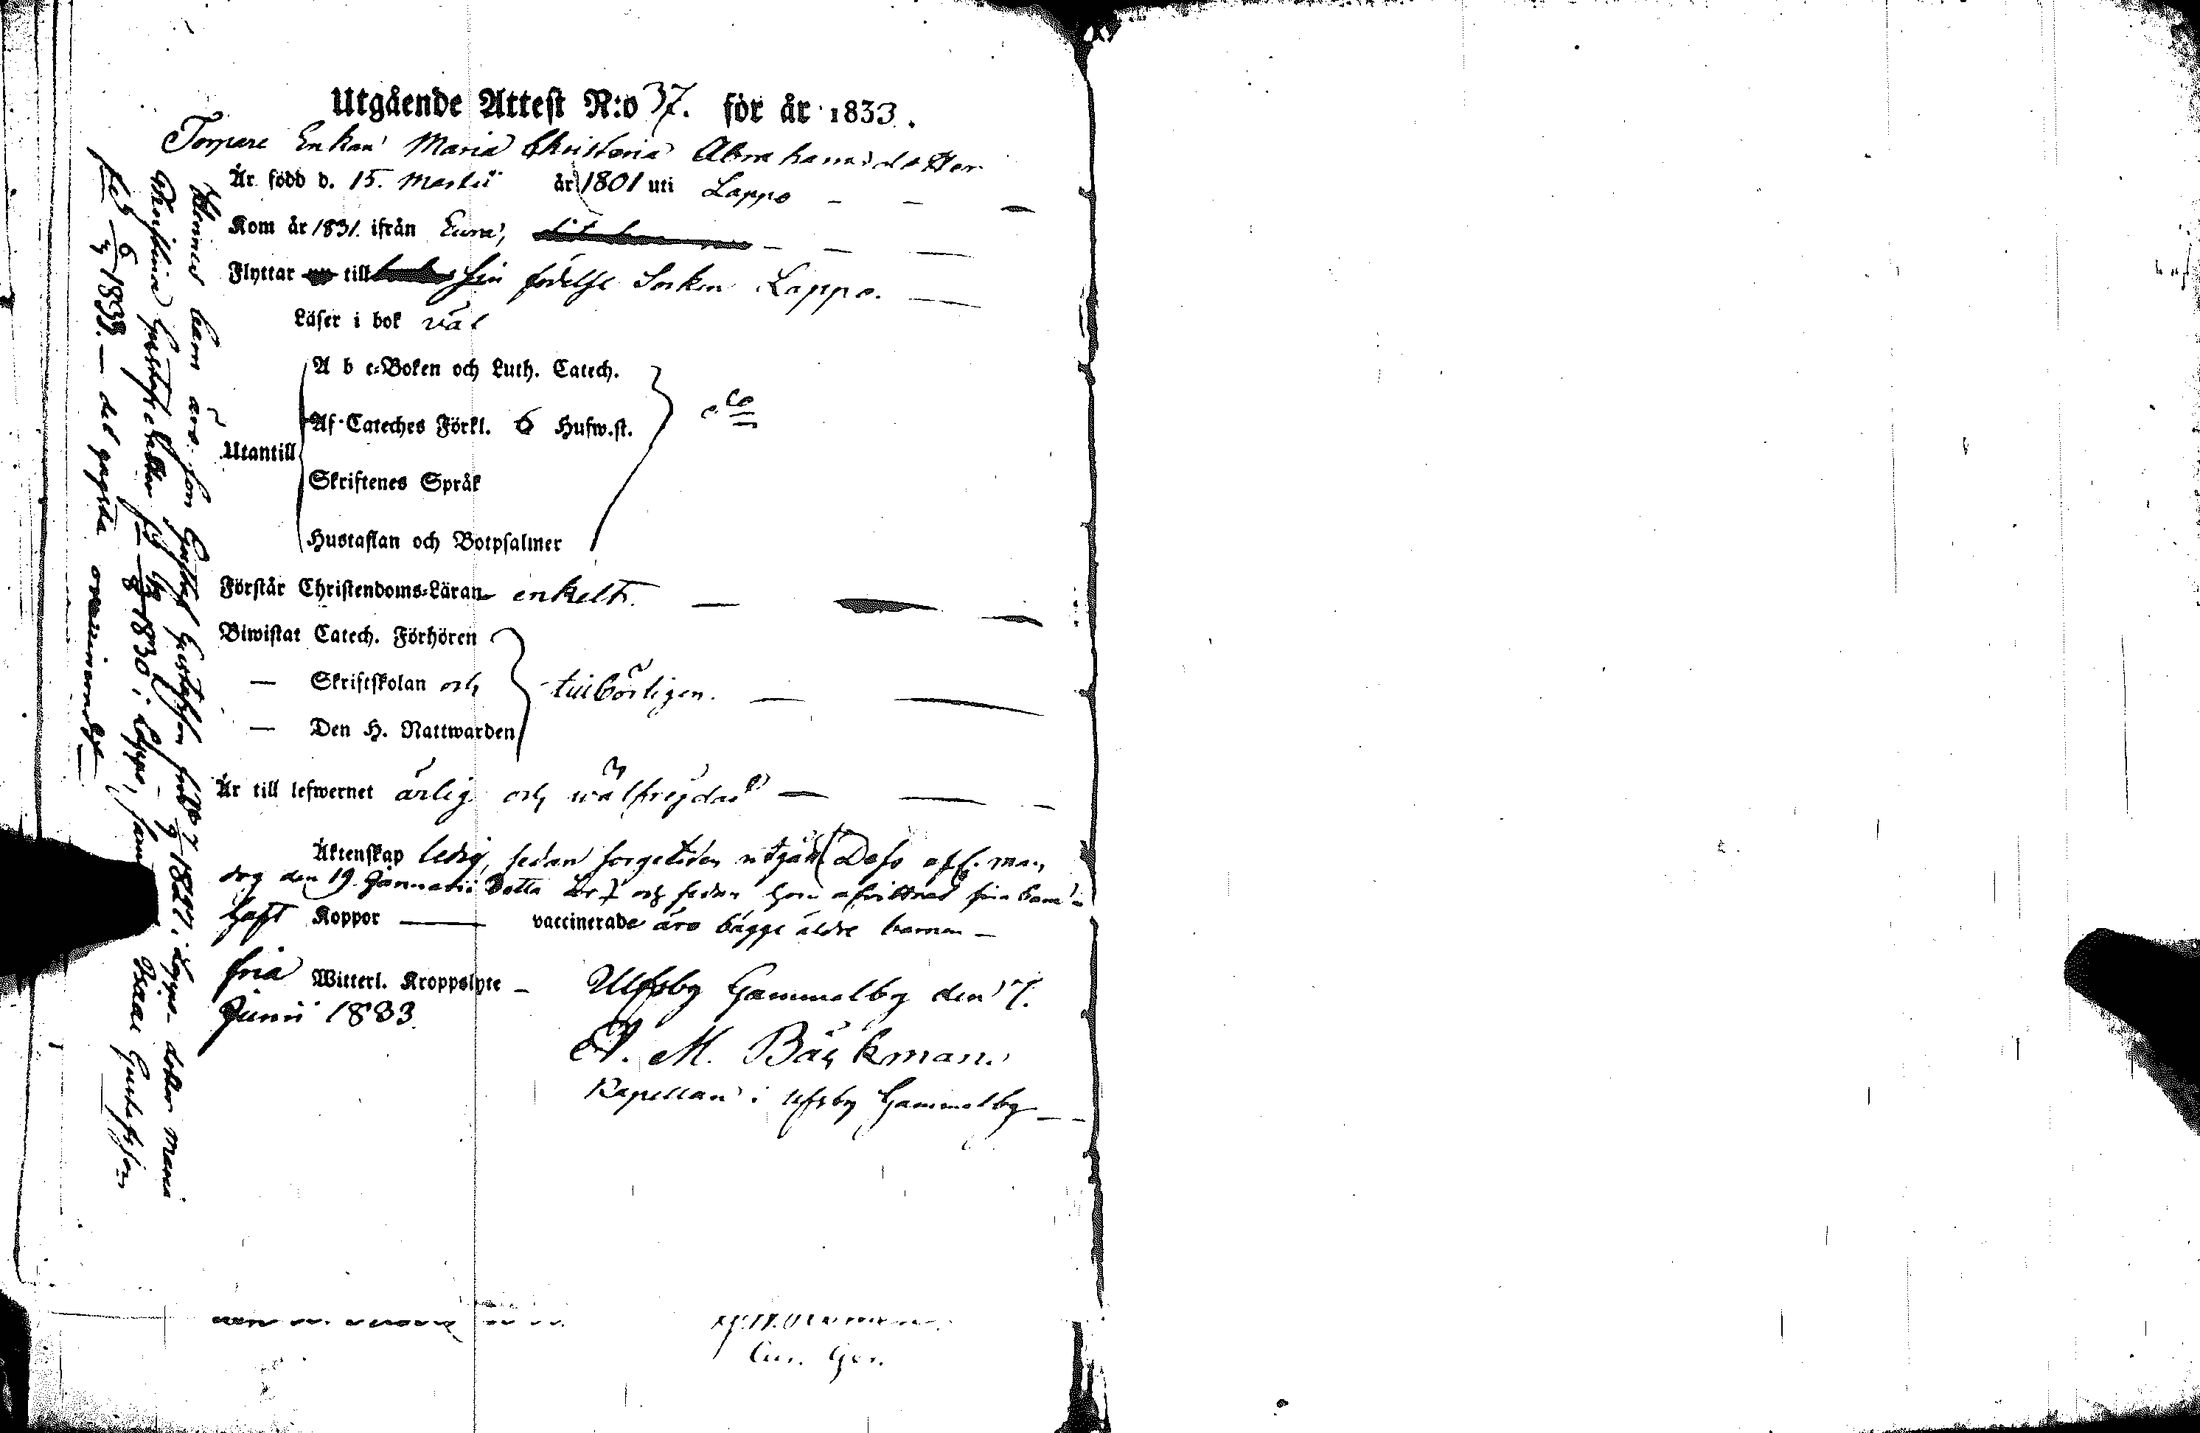 Utgående Attest N:o 37. för år 1833.
Torpare Enkan Maria Christina Abrahamsdotter
Är född d. 15. Martii år 1801 uti Lappo — — —
Kom år 1831. ifrån Eura, — — —
Flyttar till sin födelse Socken Lappo. —
Läser i bok väl
A b c-Boken och Luth. Catech.
Af Cateches Förkl. 6 Hufw.st.
Utantill
Skriftenes Språk
Hustaflan och Botpsalmer
Förstår Christendoms-Läran enkelt. — — —
Biwistat Catech. Förhören
— Skriftskolan och tillbörligen. — —
— Den H. Nattwarden
Är till lefwernet ärlig och wälfrejdad — — —
Äktenskap ledig, sedan sorgetiden utgått (Dess afl. man
dog den 19. Januarii detta år) och sedan hon afvittrat sina barn
haft Koppor — vaccinerade äro bägge äldre barnen —
fria Witterl. Kroppslyte — Ulfsby Gammelby den 7.
Junii 1833.
A. M. Bäckman.
Kapellan i Ulfsby Gammelby —
Hennes barn äro: son Gustaf Gustafsson född 7/9 1827 i Lappo — dotter Maria
Christina Gustafsdotter 1830 i Lappo, samt Isaac Gustafsson
1833. — det yngsta ovaccineradt
Cur. Ger.